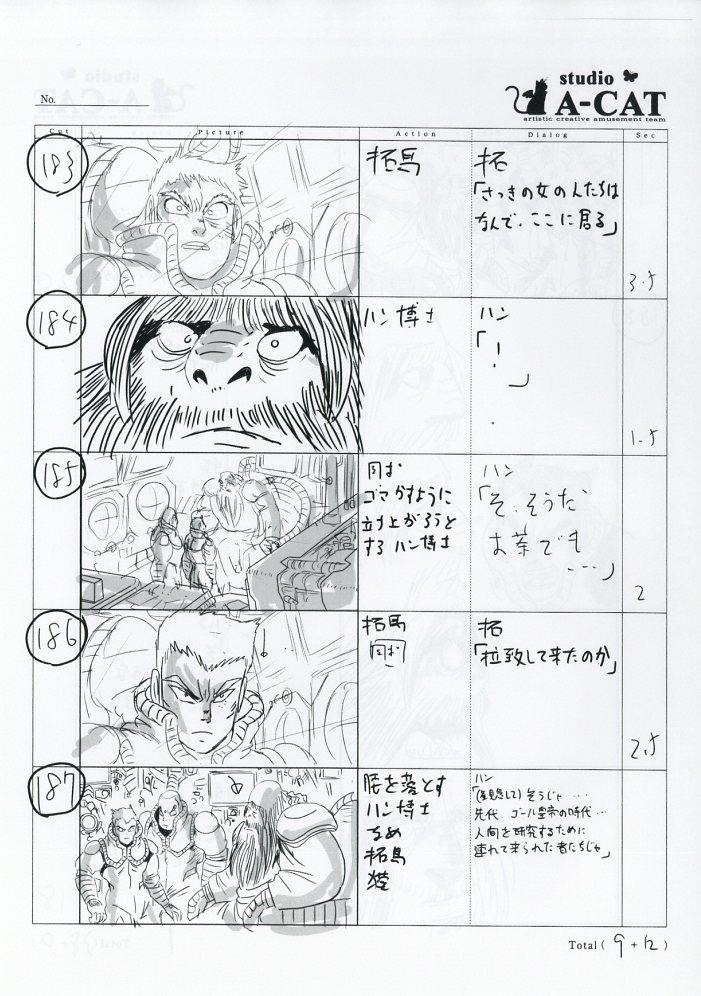 No.
studio
A-CAT
artistic creative amusement team
Cut Picture Action Dialog Sec
183
拓馬
拓
「さっきの女の人たちは
なんで、ここに居る」
3.5
184
ハン博士
ハン
「！
」
1.5
185
ゴマかすように
立ち上がろうと
する ハン博士
ハン
「そ、そうだ
お茶でも
…」
2
186
拓馬
拓
「拉致して来たのか」
2.5
187
腰を落とす
ハン博士
拓馬
ハン
「(観念して) そうじゃ…
先代、ゴール皇帝の時代…
人間を研究するために
連れて来られた者たちじゃ」
Total ( 9 + 12 )